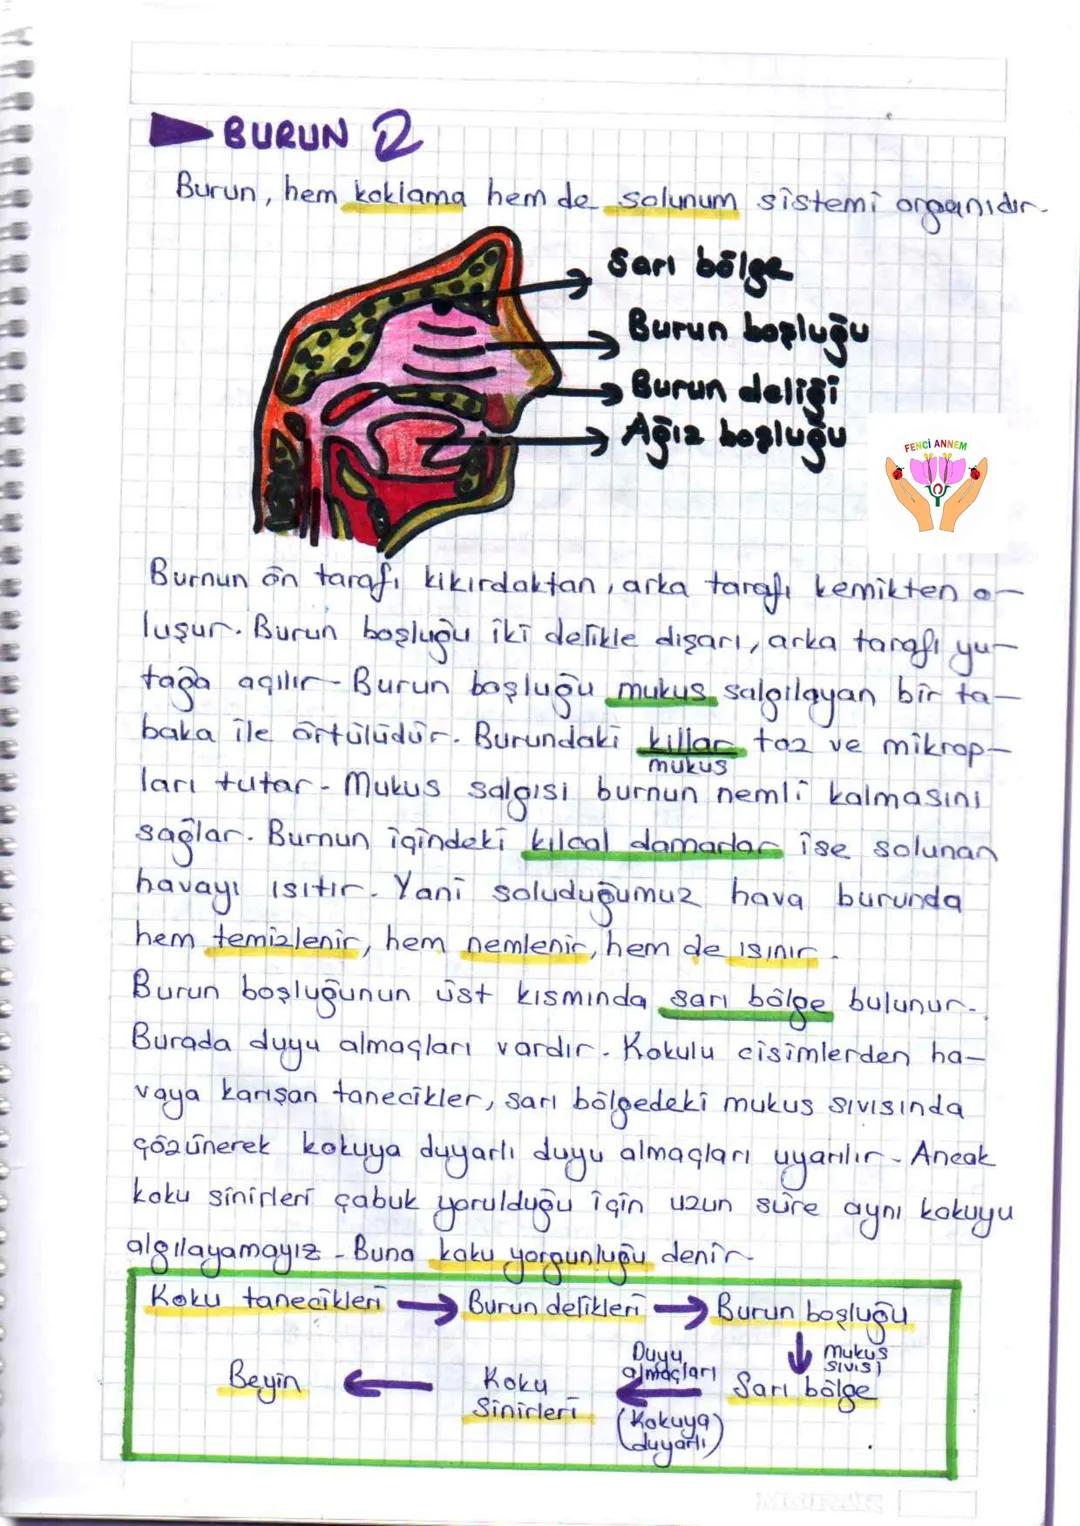 BURUN
Burun, hem koklama hem de solunum sistemi organıdır.
Sarı bölge
Burun boşluğu
Burun deliği
Ağız boşluğu
FENCİ ANNEM
Burnun ön tarafı kıkırdaktan, arka tarafı kemikten o-
luşur. Burun boşluğu iki delikle dışarı, arka tarafı yu-
tağa açılır. Burun boşluğu mukus salgılayan bir ta-
baka ile örtülüdür. Burundaki kıllar toz ve mikrop-
mukus
ları tutar. Mukus salgısı burnun nemli kalmasını
sağlar. Burnun içindeki kılcal damarlar ise solunan
havayı ısıtır. Yani soluduğumuz hava burunda
hem temizlenir, hem nemlenir, hem de ısınır.
Burun boşluğunun üst kısmında sarı bölge bulunur.
Burada duyu almaçları vardır. Kokulu cisimlerden ha-
vaya karışan tanecikler, sarı bölgedeki mukus sıvısında
çözünerek kokuya duyarlı duyu almaçları uyarılır. Ancak
koku sinirleri çabuk yorulduğu için uzun süre aynı kokuyu
algılayamayız. Buna koku yorgunluğu denir.
Koku tanecikleri → Burun delikleri → Burun boşluğu
↓ mukus
sıvısı
Sarı bölge
Duyu
almaçları
←
(Kokuya
duyarlı)
Koku
Sinirleri
←
Beyin